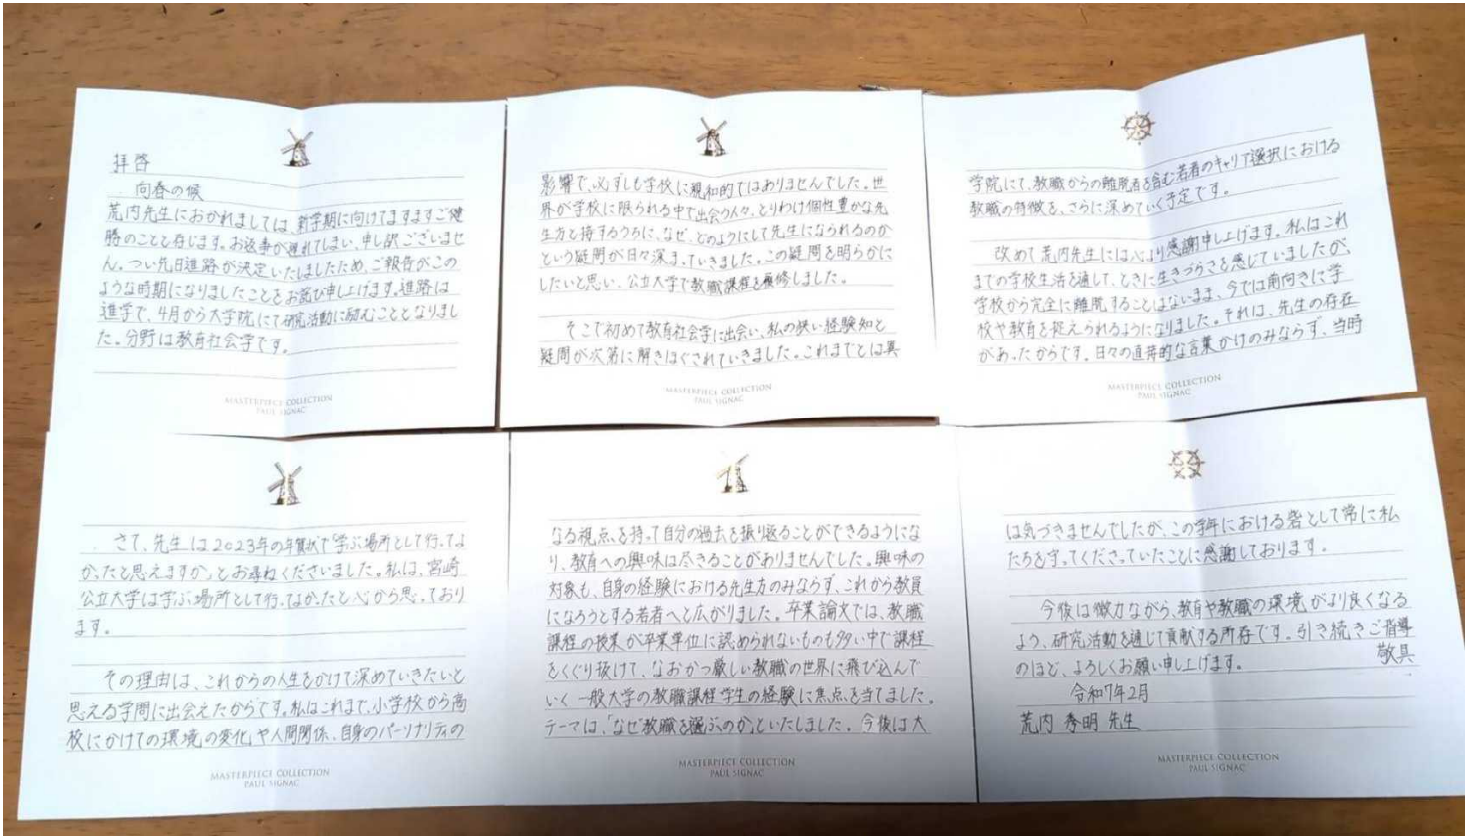 拝啓
向春の候
荒内先生におかれましては、新学期に向けてますますご健
勝のことと存じます。お返事が遅れてしまい、申し訳ございませ
ん。つい先日進路が決定いたしましたため、ご報告がこの
ような時期になりましたことをお詫び申し上げます。進路は
進学で、4月から大学院にて研究活動に励むこととなりまし
た。分野は教育社会学です。
MASTERPIECE COLLECTION
PAUL SIGNAC
さて、先生は2023年の年賀状で「学ぶ場所として行ってよ
かったと思えますか」とお尋ねくださいました。私は、宮崎
公立大学は学ぶ場所として行ってよかったと心から思っており
ます。
その理由は、これからの人生をかけて深めていきたいと
思える学問に出会えたからです。私はこれまで、小学校から高
校にかけての環境の変化や人間関係、自身のパーソナリティの
MASTERPIECE COLLECTION
PAUL SIGNAC
影響で、必ずしも学校に親和的ではありませんでした。世
界が学校に限られる中で出会う人々、とりわけ個性豊かな先
生方と接するうちに、なぜ、どのようにして先生になられるのか
という疑問が日々深まっていきました。この疑問を明らかに
したいと思い、公立大学で教職課程を履修しました。
そこで初めて教育社会学に出会い、私の狭い経験知と
疑問が次第に解きほぐされていきました。これまでとは異
MASTERPIECE COLLECTION
PAUL SIGNAC
なる視点を持って自分の過去を振り返ることができるようにな
り、教育への興味は尽きることがありませんでした。興味の
対象も、自身の経験における先生方のみならず、これから教員
になろうとする若者へと広がりました。卒業論文では、教職
課程の授業が卒業単位に認められないものも多い中で課程
をくぐり抜けて、なおかつ厳しい教職の世界に飛び込んで
いく一般大学の教職課程学生の経験に焦点を当てました。
テーマは、「なぜ教職を選ぶのか」といたしました。今後は大
MASTERPIECE COLLECTION
PAUL SIGNAC
学院にて、教職からの離脱者を含む若者のキャリア選択における
教職の特徴を、さらに深めていく予定です。
改めて荒内先生には心より感謝申し上げます。私はこれ
までの学校生活を通して、ときに生きづらさを感じていましたが、
学校から完全に離脱することはないまま、今では前向きに学
校や教育を捉えられるようになりました。それは、先生の存在
があったからです。日々の直接的な言葉かけのみならず、当時
MASTERPIECE COLLECTION
PAUL SIGNAC
は気づきませんでしたが、この学年における砦として常に私
たちを守ってくださっていたことに感謝しております。
今後は微力ながら、教育や教職の環境がより良くなる
よう、研究活動を通じて貢献する所存です。引き続きご指導
のほど、よろしくお願い申し上げます。
敬具
令和7年2月
荒内 秀明 先生
MASTERPIECE COLLECTION
PAUL SIGNAC